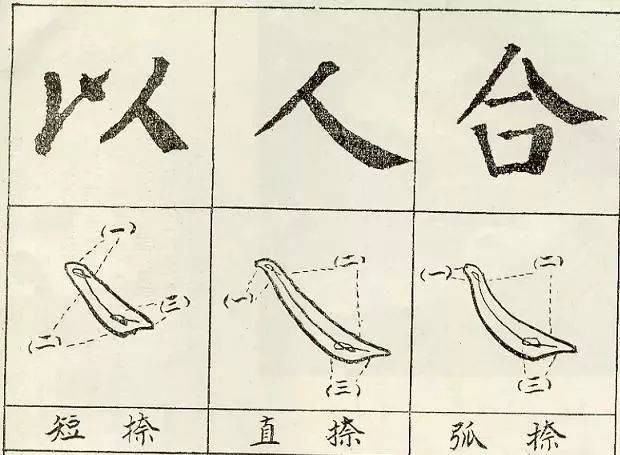 以 人 合
(一) (二) (三)
(一) (二) (三)
(一) (二) (三)
短捺 直捺 弧捺